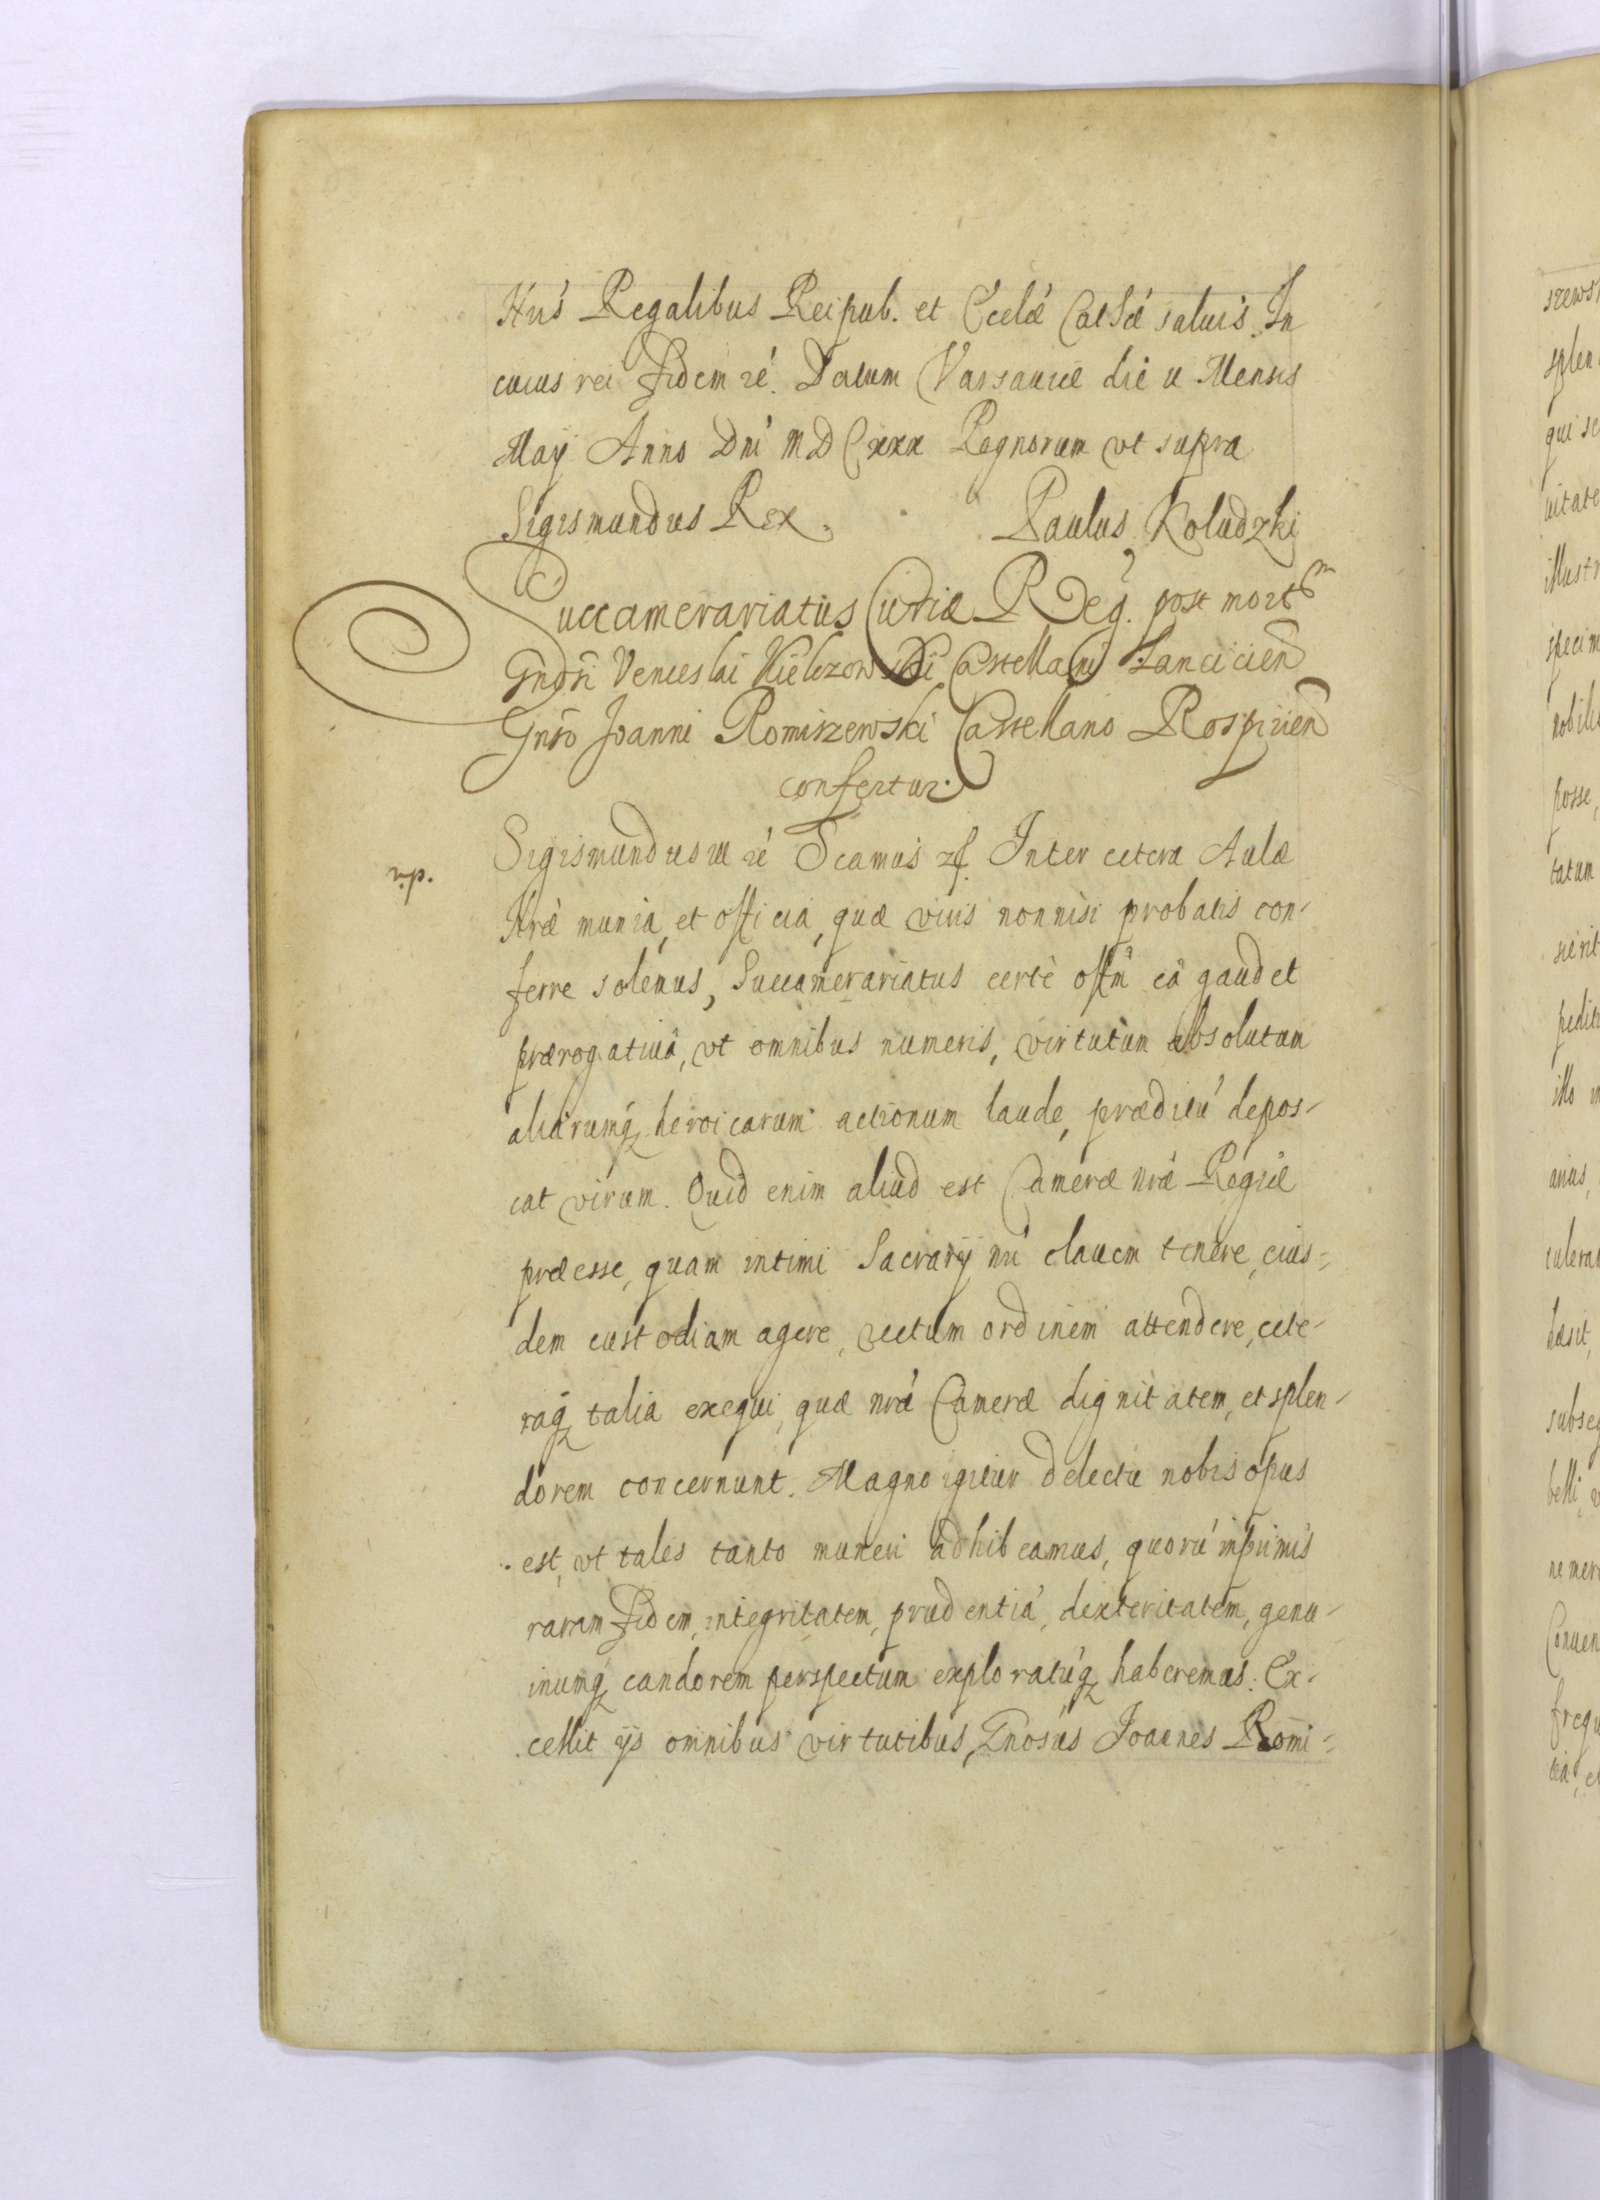 Nris Regalibus Reipub. et Eccłæ Catłcæ saluis. In
cuius rei fidem zć. Datum Varsauiæ die u Mensis
Maÿ Anno Dni MDCxxx Regnorum vt supra
Sigismundus Rex. Paulus Koludzki
Succamerariatus Curiæ Reg. post mortem
Gnosi Venceslai Kielczowski Castellani Lancicien
Gnso Joanni Romiszewski Castellano Rospirien
confertur.
r.p.
Sigismundus III zć Scamus zf. Inter cetera Aulæ
Nræ munia, et officia, quæ viris nonnisi probatis con-
ferre solemus, Succamerariatus certè offm eâ gaudet
prærogatiuâ, vt omnibus numeris, virtutum absolutum
aliarumq heroicarum actionum laude, præditú depos-
cat virum. Quid enim aliud est Cameræ nræ Regiæ
præesse, quam intimi Sacrarÿ nri clauem tenere, eius-
dem custodiam agere, rectum ordinem attendere, cete-
raq talia exequi, quæ nræ Cameræ dignitatem, et splen-
dorem concernunt. Magno igitur delectu nobis opus
est, vt tales tanto muneri adhibeamus, quorú inprimis
raram fidem, integritatem, prudentiá, dexteritatem, genu-
inumq candorem perspectum exploratúq haberemus. Ex-
cellit ijs omnibus virtutibus, Gnosus Joannes Romi-